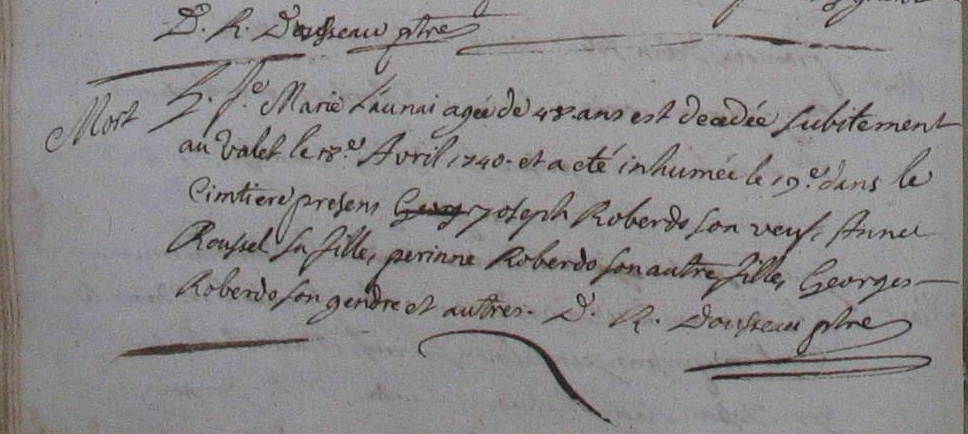 D. R. Dousseau ptre
Mort
h. fe Marie Launai agée de 48 ans est decedée Subitement
au Valet le 18.e Avril 1740. et a eté inhumée le 19.e dans le
Cimtiere presens Joseph Roberdo son veuf, Anne
Roussel sa fille, perinne Roberdo son autre fille, Georges
Roberdo son gendre et autres. D. R. Dousseau ptre